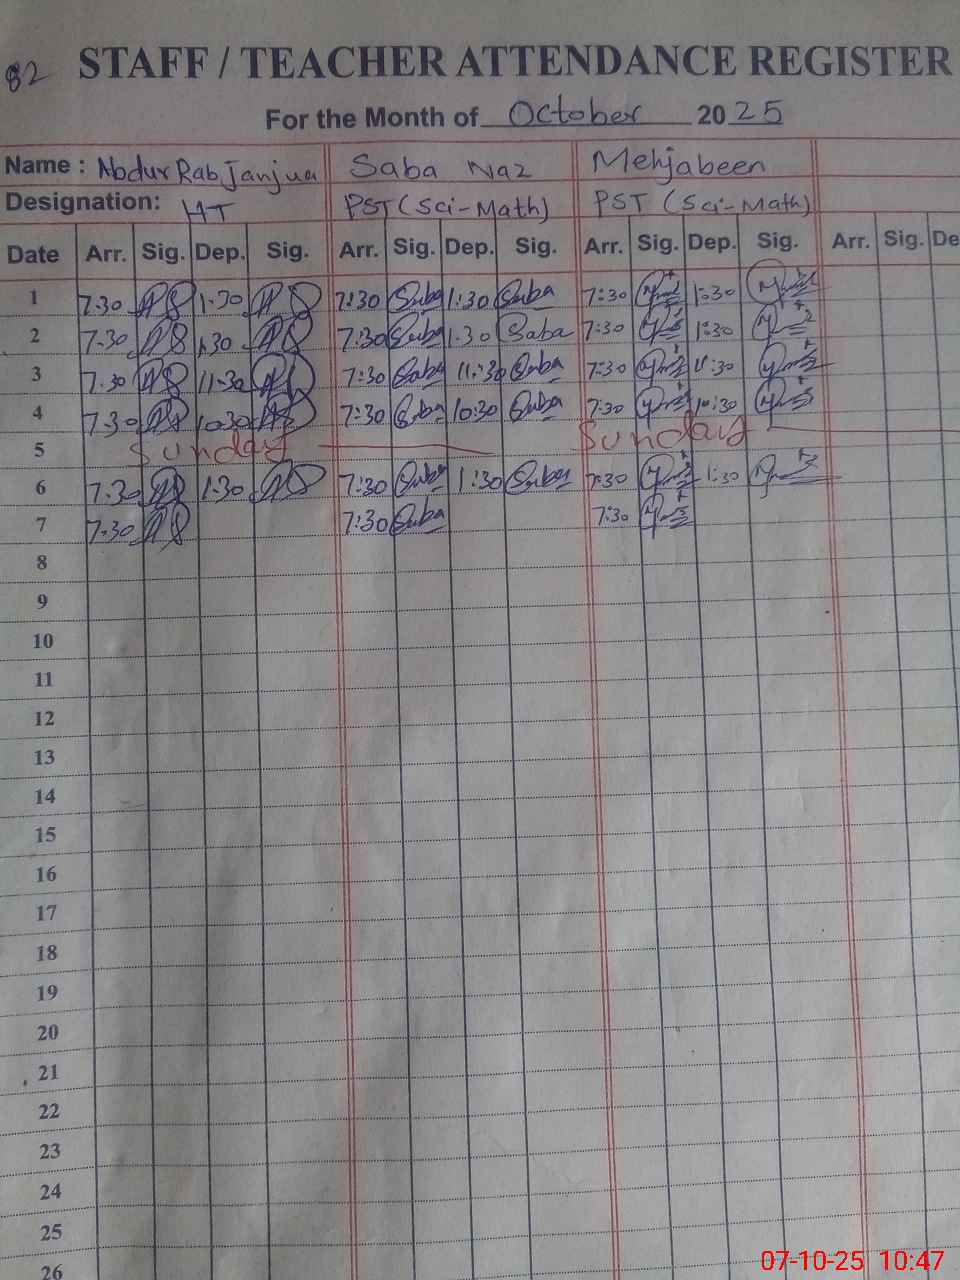 82
STAFF / TEACHER ATTENDANCE REGISTER
For the Month of October 2025
Name : Abdur Rab Janjua Saba Naz Mehjabeen
Designation: HT PST (Sci-Math) PST (Sci-Math)
Date Arr. Sig. Dep. Sig. Arr. Sig. Dep. Sig. Arr. Sig. Dep. Sig. Arr. Sig. De
1 7:30 1:30 7:30 Saba 1:30 Saba 7:30 1:30
2 7:30 1:30 7:30 Saba 1:30 Saba 7:30 1:30
3 7:30 11:30 7:30 Saba 11:30 Saba 7:30 11:30
4 7:30 10:30 7:30 Saba 10:30 Saba 7:30 10:30
5 Sunday Sunday
6 7:30 1:30 7:30 Saba 1:30 Saba 7:30 1:30
7 7:30 7:30 Saba 7:30
8
9
10
11
12
13
14
15
16
17
18
19
20
21
22
23
24
25
26
07-10-25 10:47